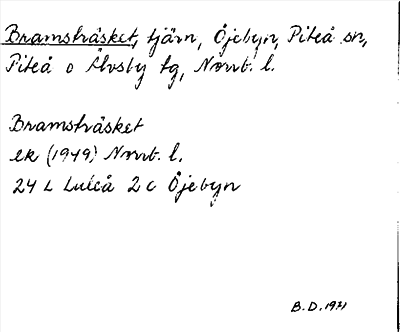 Bramsträsket, tjärn, Öjebyn, Piteå sn,
Piteå o Älvsby tg, Norrb. l.
Bramsträsket
ek (1949) Norrb. l.
24 L Luleå 2 c Öjebyn
B.D. 1971